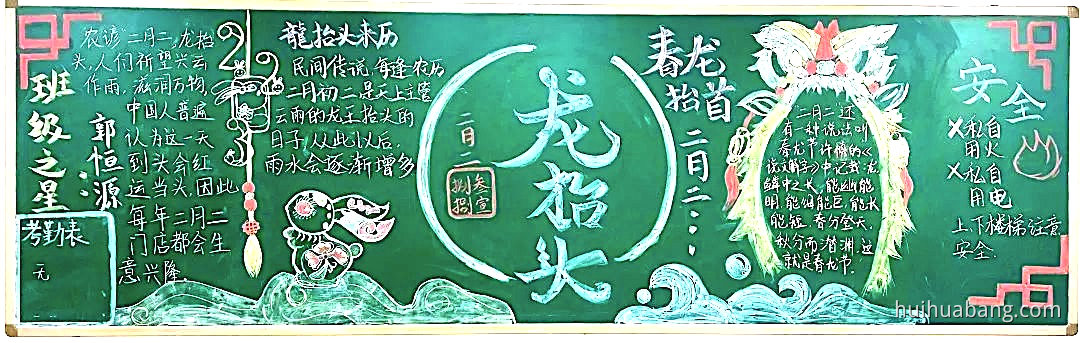 班级之星
郭恒源
考勤表
无
农谚“二月二,龙抬
头,人们祈望兴云
作雨,滋润万物,
中国人普遍
认为这一天
到头会红
运当头,因此
每年二月二
门店都会生
意兴隆
龍抬头来历
民间传说,每逢农历
二月初二是天上主管
云雨的龙王抬头的
日子,从此以后,
雨水会逐渐增多
二月二
龙抬头
春龙
抬首
二月二:
二月二还
有一种说法叫
春龙节,许慎的《
说文解字》中记载:龙,
鳞中之长,能幽能
明,能细能巨,能长
能短,春分登天,
秋分而潜渊,这
就是春龙节.
安全
X私自
用火
X私自
用电
上下楼梯注意
安全.
huihuabang.com